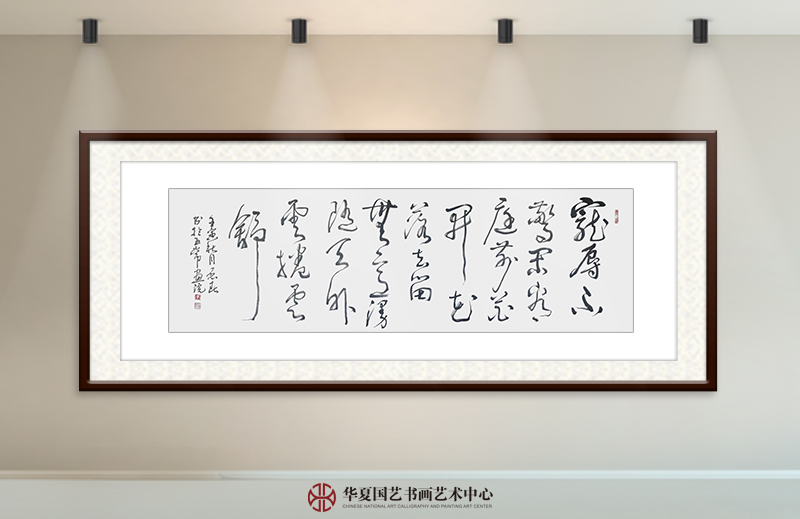 寵辱不
驚閑看
庭前花
開花
落去留
無意漫
隨天外
雲捲雲
舒
壬寅秋月
華夏国艺书画艺术中心
CHINESE NATIONAL ART CALLIGRAPHY AND PAINTING ART CENTER